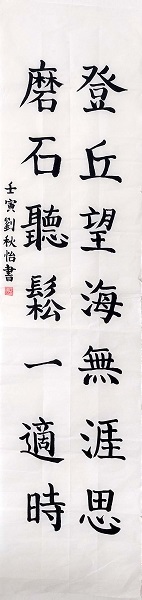 登丘望海無涯思
磨石聽鬆一適時
壬寅劉秋怡書